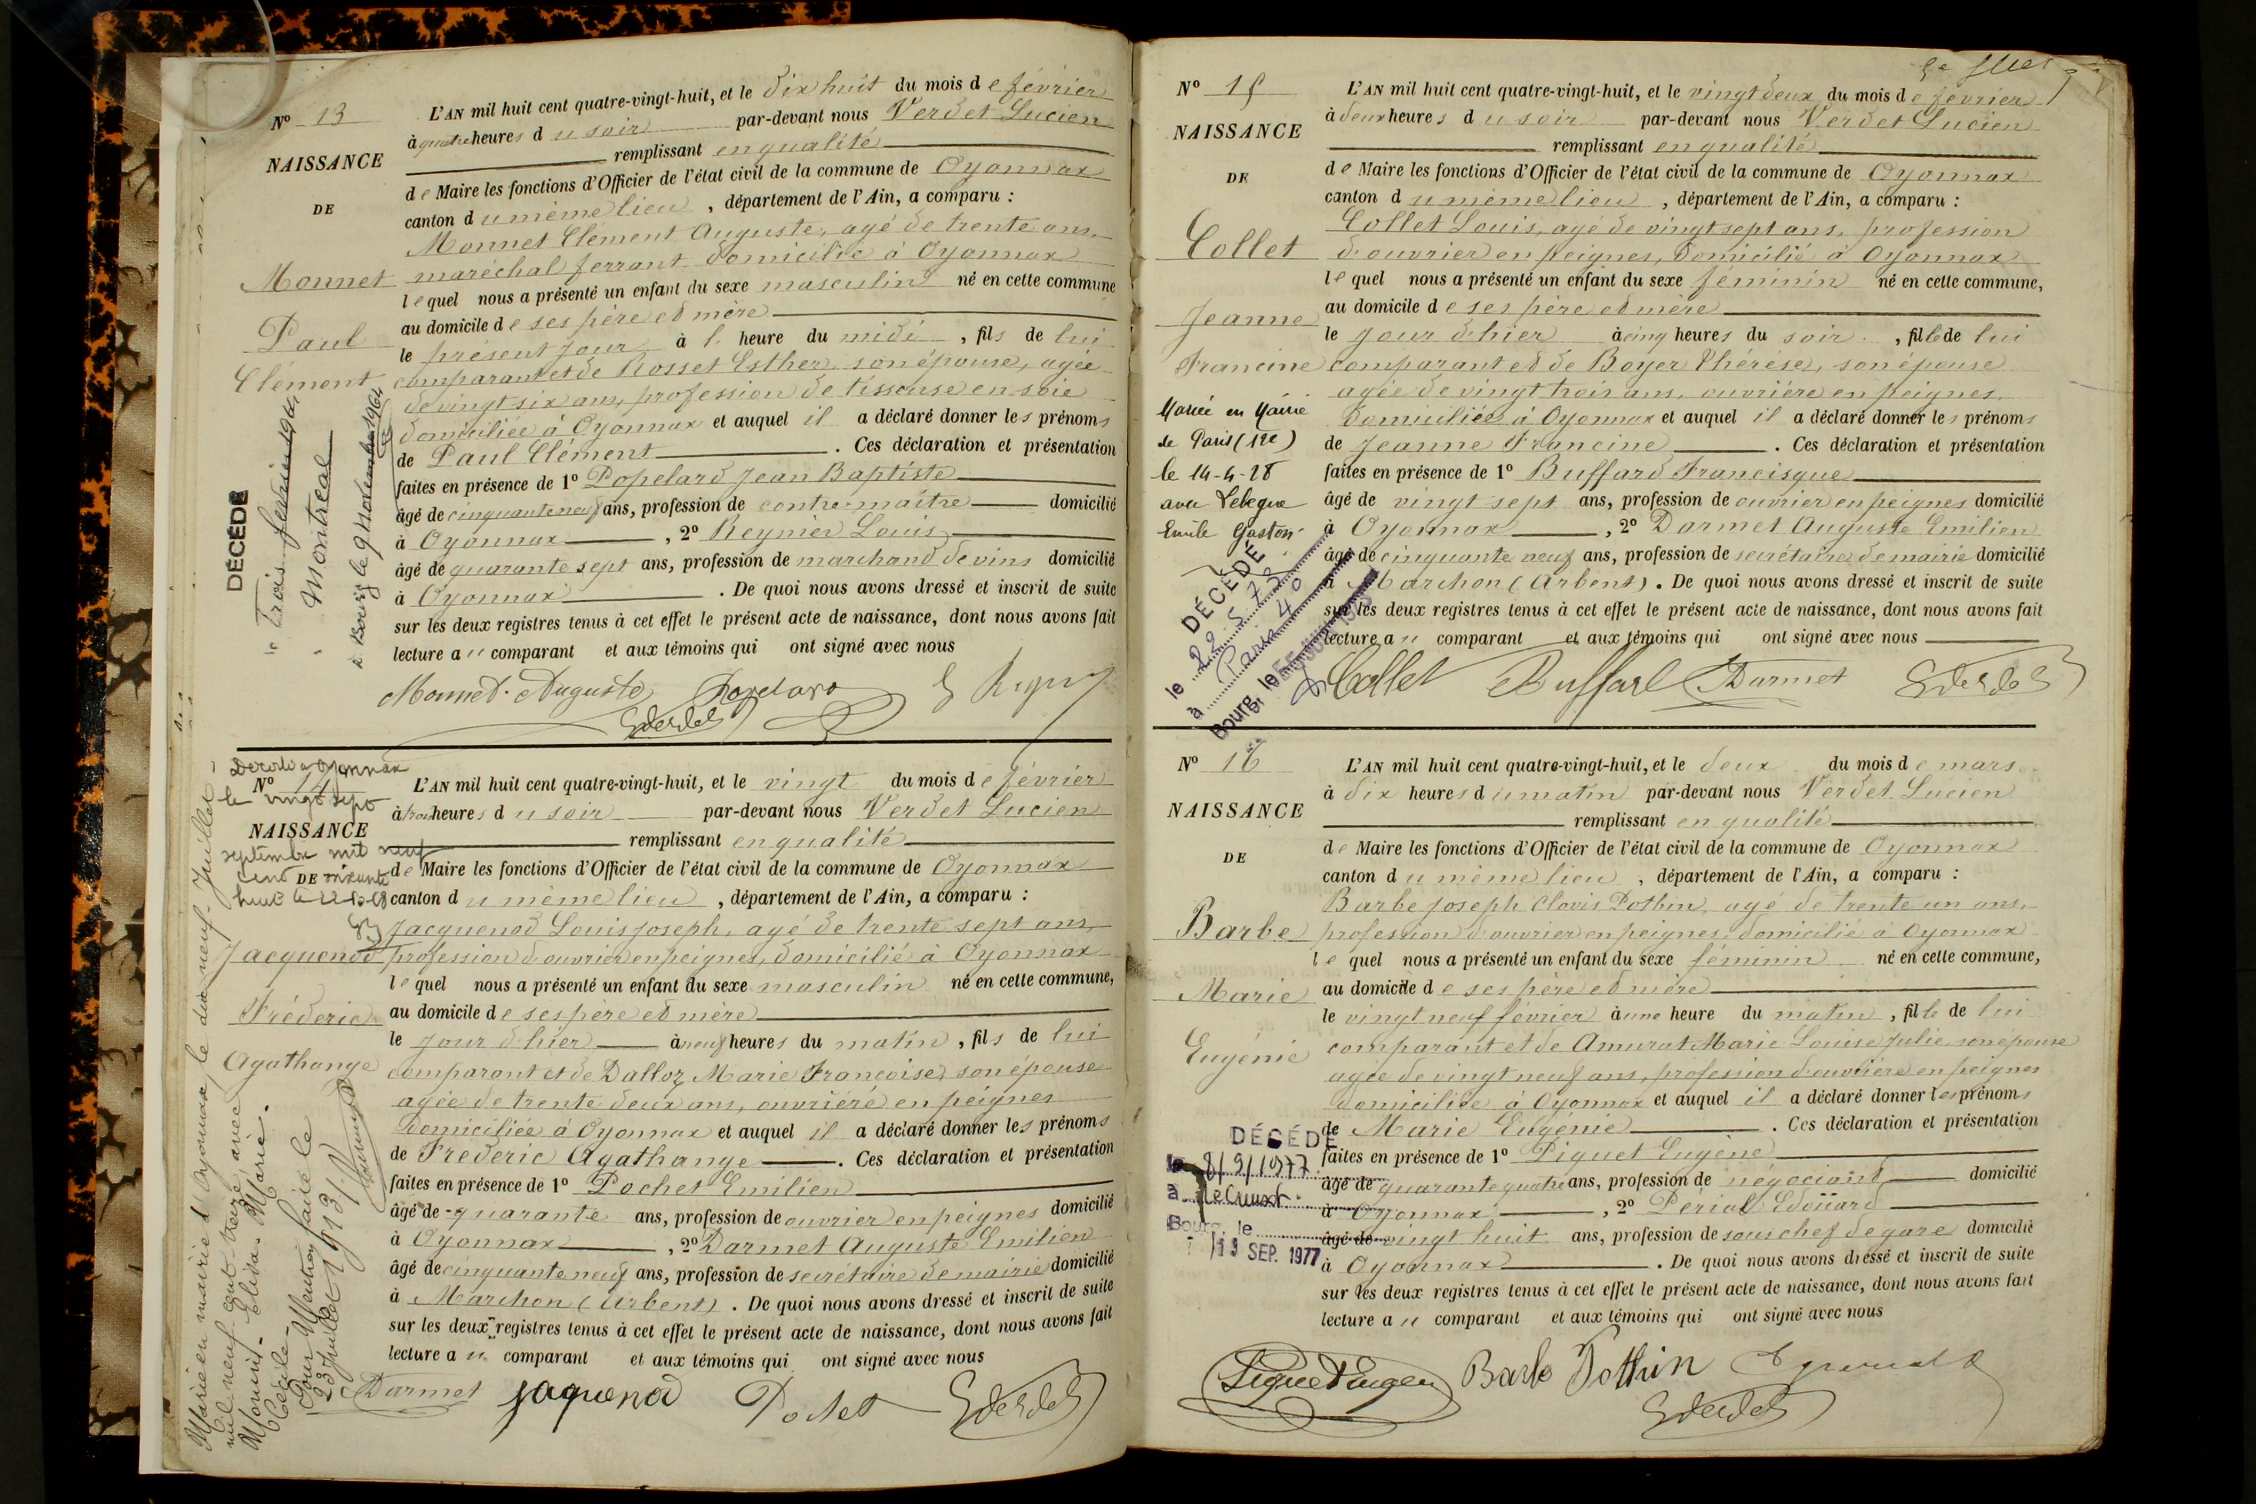 Nº 13
NAISSANCE
DE
Monnet
Paul
Clément
DÉCÉDÉ
le trois février 1964
à Montréal
à Bourg le 9 Novembre 1964
L'AN mil huit cent quatre-vingt-huit, et le dix huit du mois de février
à quatre heures du soir par-devant nous Verdet Lucien
remplissant en qualité
de Maire les fonctions d'Officier de l'état civil de la commune de Oyonnax
canton du même lieu, département de l'Ain, a comparu :
Monnet Clément Auguste, agé de trente ans,
maréchal ferrant domicilié à Oyonnax
lequel nous a présenté un enfant du sexe masculin né en cette commune
au domicile de ses père et mère
le présent jour à l' heure du midi, fils de lui
comparant et de Rosset Esther son épouse, agée
de vingt six ans, profession de tisseuse en soie
domiciliée à Oyonnax et auquel il a déclaré donner les prénoms
de Paul Clément. Ces déclaration et présentation
faites en présence de 1º Popelard Jean Baptiste
âgé de cinquante neuf ans, profession de contre-maître domicilié
à Oyonnax, 2º Reynier Louis
âgé de quarante sept ans, profession de marchand de vins domicilié
à Oyonnax. De quoi nous avons dressé et inscrit de suite
sur les deux registres tenus à cet effet le présent acte de naissance, dont nous avons fait
lecture au comparant et aux témoins qui ont signé avec nous
Monnet Auguste Popelard
Nº 14
NAISSANCE
DE
Décédé à Oyonnax
le vingt sept
septembre mil neuf
cent soixante
huit le 22-10-68
Jacquenod
Fréderic
Agathange
Marié en mairie d'Oyonnax, le dix neuf Juillet
mil neuf cent treize avec
Monin Elida Marie
Cécile
Pour Mention faite le
23 Juillet 1913
L'AN mil huit cent quatre-vingt-huit, et le vingt du mois de février
à trois heures du soir par-devant nous Verdet Lucien
remplissant en qualité
de Maire les fonctions d'Officier de l'état civil de la commune de Oyonnax
canton du même lieu, département de l'Ain, a comparu :
Jacquenod Louis Joseph, agé de trente sept ans,
profession d'ouvrier en peignes, domicilié à Oyonnax
lequel nous a présenté un enfant du sexe masculin né en cette commune,
au domicile de ses père et mère
le jour d'hier à neuf heures du matin, fils de lui
comparant et de Dalloz Marie Françoise, son épouse
agée de trente deux ans, ouvrière en peignes
domiciliée à Oyonnax et auquel il a déclaré donner les prénoms
de Fréderic Agathange. Ces déclaration et présentation
faites en présence de 1º Pochet Emilien
âgé de quarante ans, profession de ouvrier en peignes domicilié
à Oyonnax, 2º Darmet Auguste Emilien
âgé de cinquante neuf ans, profession de secrétaire de mairie domicilié
à Marchon (Arbent). De quoi nous avons dressé et inscrit de suite
sur les deux registres tenus à cet effet le présent acte de naissance, dont nous avons fait
lecture au comparant et aux témoins qui ont signé avec nous
Darmet jaquenod Pochet
Nº 15
NAISSANCE
DE
Collet
Jeanne
Francine
Mariée en Mairie
de Paris (12e)
le 14-4-28
avec Lebègue
Emile Gaston
DÉCÉDÉ
le 22 5 73
à
Bourg, le
L'AN mil huit cent quatre-vingt-huit, et le vingt deux du mois de février
à deux heures du soir par-devant nous Verdet Lucien
remplissant en qualité
de Maire les fonctions d'Officier de l'état civil de la commune de Oyonnax
canton du même lieu, département de l'Ain, a comparu :
Collet Louis, agé de vingt sept ans, profession
d'ouvrier en peignes, domicilié à Oyonnax
lequel nous a présenté un enfant du sexe féminin né en cette commune,
au domicile de ses père et mère
le jour d'hier à cinq heures du soir, fille de lui
comparant et de Boyer Thérèse, son épouse
agée de vingt trois ans, ouvrière en peignes,
domiciliée à Oyonnax et auquel il a déclaré donner les prénoms
de Jeanne Francine. Ces déclaration et présentation
faites en présence de 1º Buffard Francisque
âgé de vingt sept ans, profession de ouvrier en peignes domicilié
à Oyonnax, 2º Darmet Auguste Emilien
âgé de cinquante neuf ans, profession de secrétaire de mairie domicilié
à Marchon (Arbent). De quoi nous avons dressé et inscrit de suite
sur les deux registres tenus à cet effet le présent acte de naissance, dont nous avons fait
lecture au comparant et aux témoins qui ont signé avec nous
Collet Buffard Darmet
Nº 16
NAISSANCE
DE
Barbe
Marie
Eugénie
DÉCÉDÉ
le 8/9/1977
à Le Creusot
Bourg, le
13 SEP. 1977
L'AN mil huit cent quatre-vingt-huit, et le deux du mois de mars
à dix heures du matin par-devant nous Verdet Lucien
remplissant en qualité
de Maire les fonctions d'Officier de l'état civil de la commune de Oyonnax
canton du même lieu, département de l'Ain, a comparu :
Barbe Joseph Clovis Pothin, agé de trente un ans,
profession d'ouvrier en peignes, domicilié à Oyonnax
lequel nous a présenté un enfant du sexe féminin né en cette commune,
au domicile de ses père et mère
le vingt neuf février à une heure du matin, fille de lui
comparant et de Amurat Marie Louise Julie son épouse
agée de vingt neuf ans, profession d'ouvrière en peignes
domiciliée à Oyonnax et auquel il a déclaré donner les prénoms
de Marie Eugénie. Ces déclaration et présentation
faites en présence de 1º Piquet Eugène
âgé de quarante quatre ans, profession de négociant domicilié
à Oyonnax, 2º Périal Edouard
âgé de vingt huit ans, profession de sous chef de gare domicilié
à Oyonnax. De quoi nous avons dressé et inscrit de suite
sur les deux registres tenus à cet effet le présent acte de naissance, dont nous avons fait
lecture au comparant et aux témoins qui ont signé avec nous
Barbe Pothin